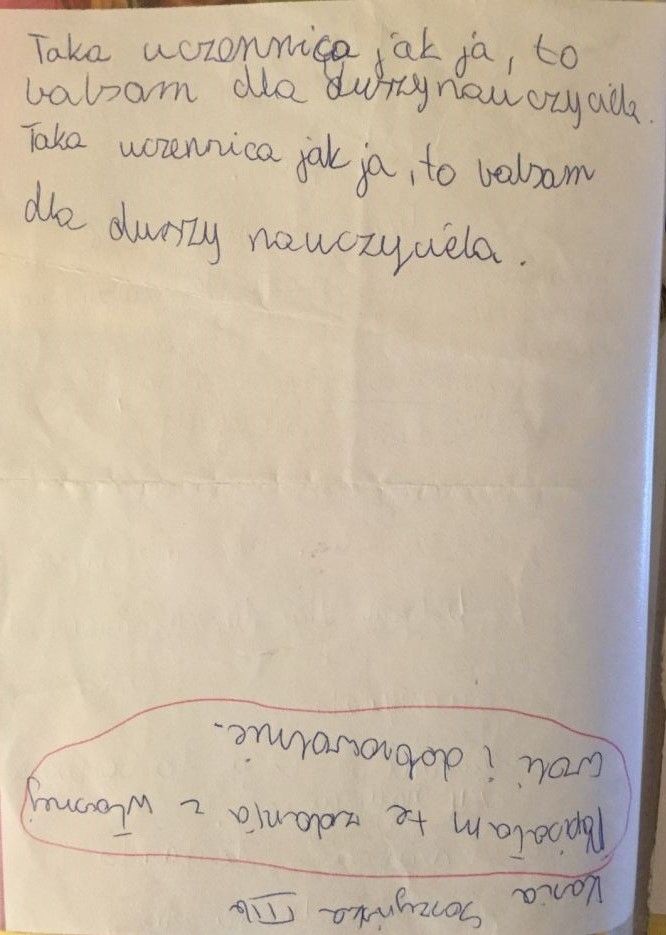 Taka uczennica jak ja, to
balsam dla duszy nauczyciela.
Taka uczennica jak ja, to balsam
dla duszy nauczyciela.
Kasia Gorzyńska IIIb
Napisałam te zdania z własnej
woli i dobrowolnie.